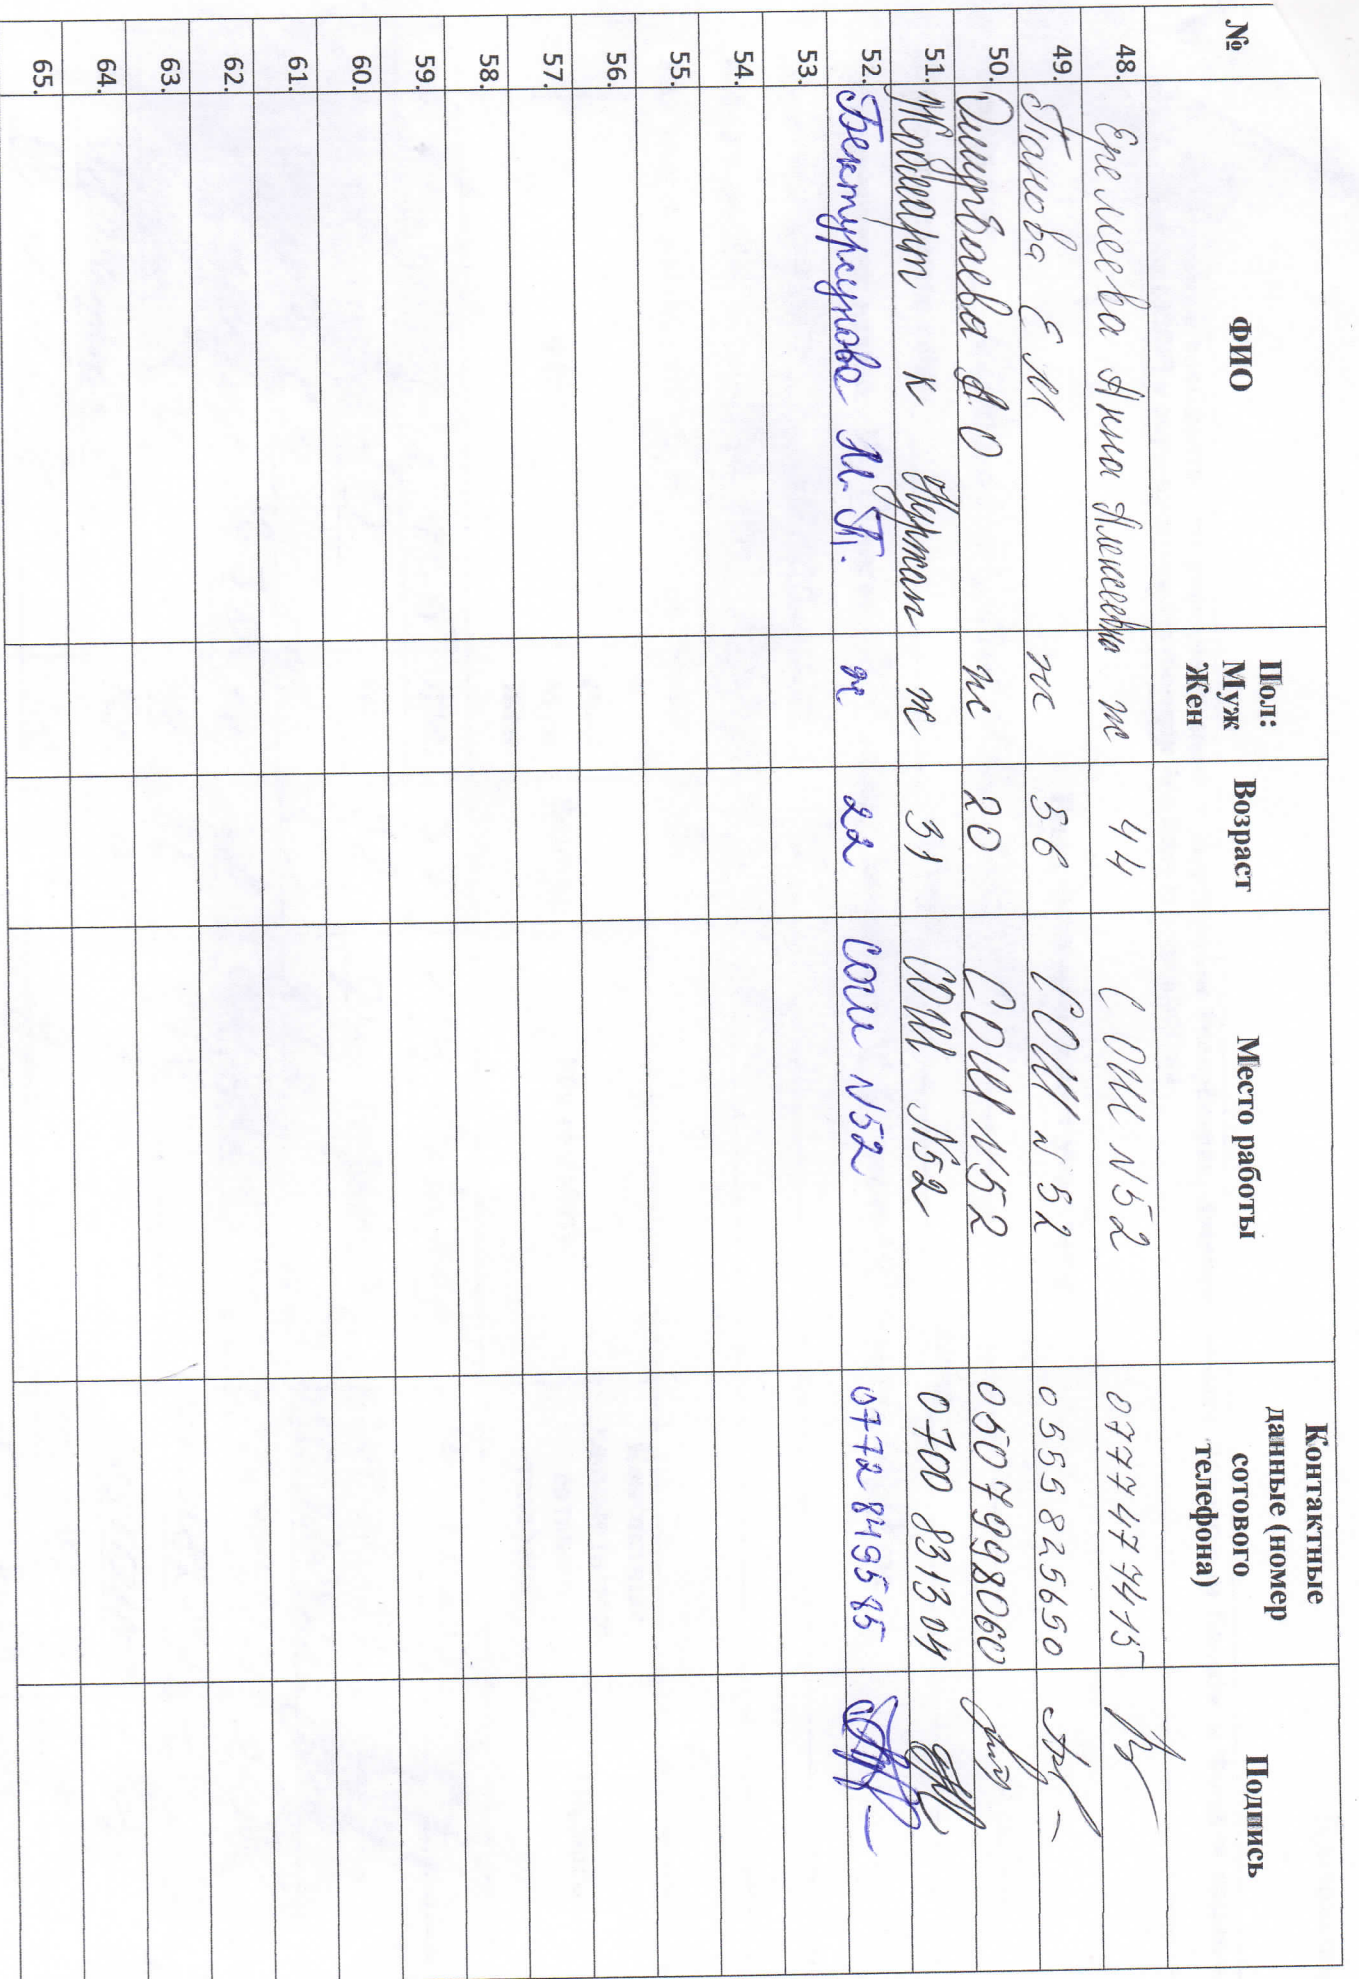 № ФИО Пол: Муж Жен Возраст Место работы Контактные данные (номер сотового телефона) Подпись
48. Еремеева Анна Алексеевна ж 44 СОШ N52 0777477415
49. Панова Е М ж 56 СОШ N 52 0555825650
50. А О ж 20 СОШ N52 0507998060
51. к Нуржан ж 31 СОШ N52 0700 831304
52. Бектурсунова М. Т. ж 22 СОШ N52 0772849585
53.
54.
55.
56.
57.
58.
59.
60.
61.
62.
63.
64.
65.